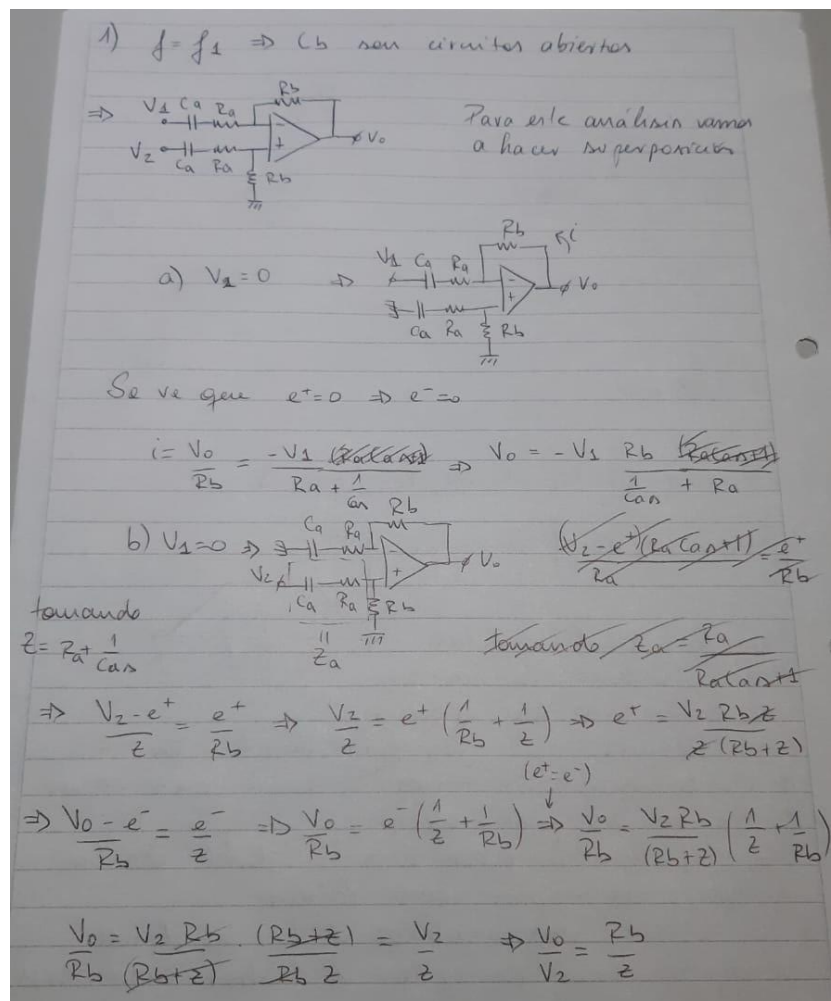 1) f = f1 ⇒ Cb son circuitos abiertos
⇒ V1 Ca Ra Rb - Vo
V2 Ca Ra + Rb
Para este análisis vamos
a hacer superposición
a) V1 = 0 ⇒ V1 Ca Ra Rb i - + Vo
Ca Ra Rb
Se ve que e⁺=0 ⇒ e⁻=0
i = Vo/Rb = -V1 (RaCas+1)/(Ra + 1/Cas) ⇒ Vo = -V1 Rb (RaCas+1)/(1/Cas + Ra)
b) V1=0 ⇒ Ca Ra Rb - + Vo
V2 Ca Ra Rb
Za
(V2-e⁺)(RaCas+1)/Ra = e⁺/Rb
tomando
Z = Ra + 1/Cas
tomando Za = Ra/(RaCas+1)
⇒ (V2-e⁺)/Z = e⁺/Rb ⇒ V2/Z = e⁺ (1/Rb + 1/Z) ⇒ e⁺ = V2 Rb Z/(Z (Rb+Z))
(e⁺=e⁻)
⇒ (Vo-e⁻)/Rb = e⁻/Z ⇒ Vo/Rb = e⁻ (1/Z + 1/Rb) ⇒ Vo/Rb = V2 Rb/(Rb+Z) (1/Z + 1/Rb)
Vo/Rb = V2 Rb/(Rb+Z) . (Rb+Z)/(Rb Z) = V2/Z ⇒ Vo/V2 = Rb/Z